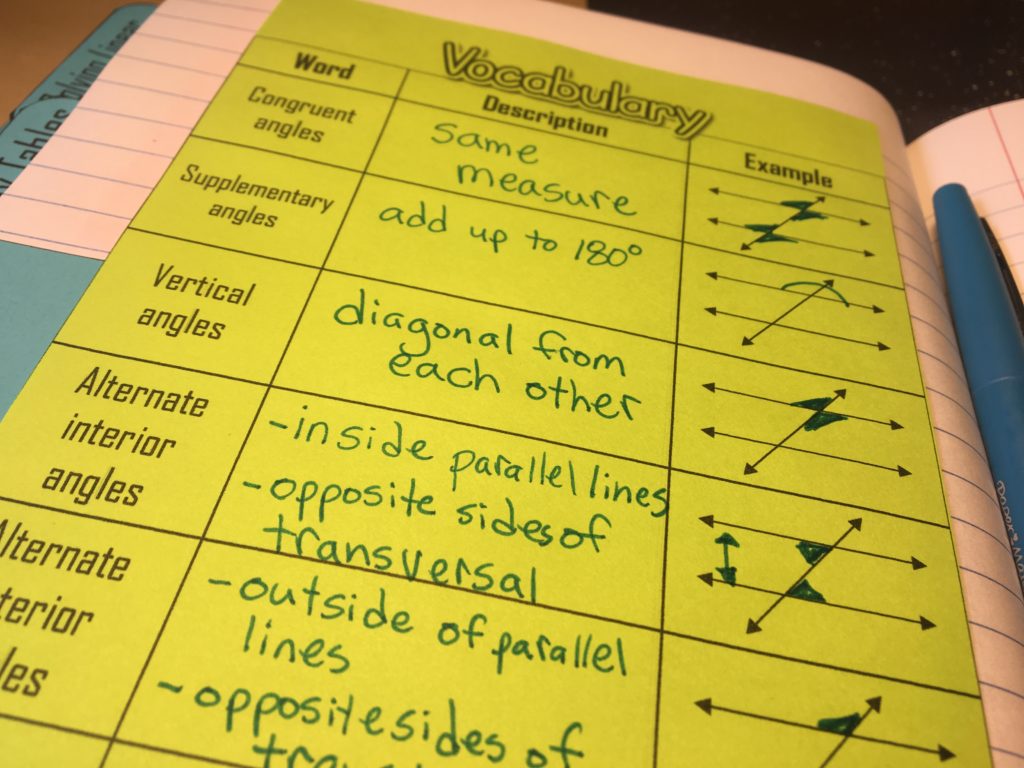 Vocabulary
Word
Description
Example
Congruent
angles
same
measure
Supplementary
angles
add up to 180°
Vertical
angles
diagonal from
each other
Alternate
interior
angles
-inside parallel lines
-opposite sides of
transversal
Alternate
-outside of parallel
lines
-opposite sides of